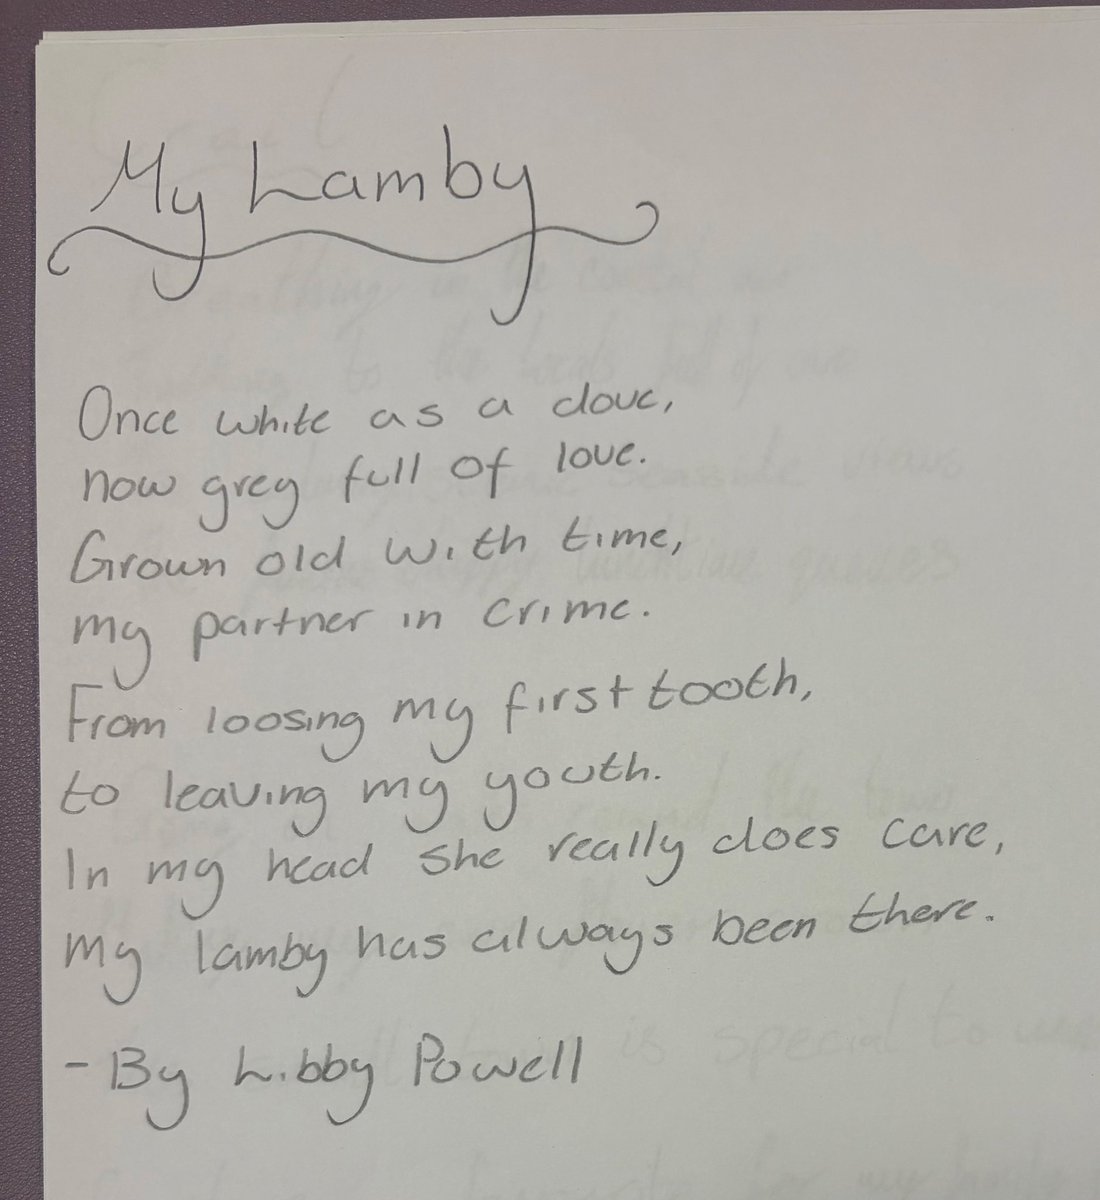 My Lamby
Once white as a dove,
now grey full of love.
Grown old with time,
my partner in crime.
From loosing my first tooth,
to leaving my youth.
In my head she really does care,
my lamby has always been there.
- By Libby Powell